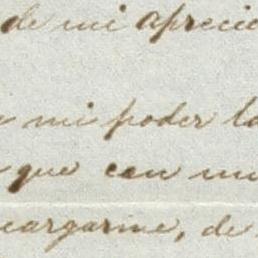 de mi aprecio
mi poder la
que con mi
cargarme, de